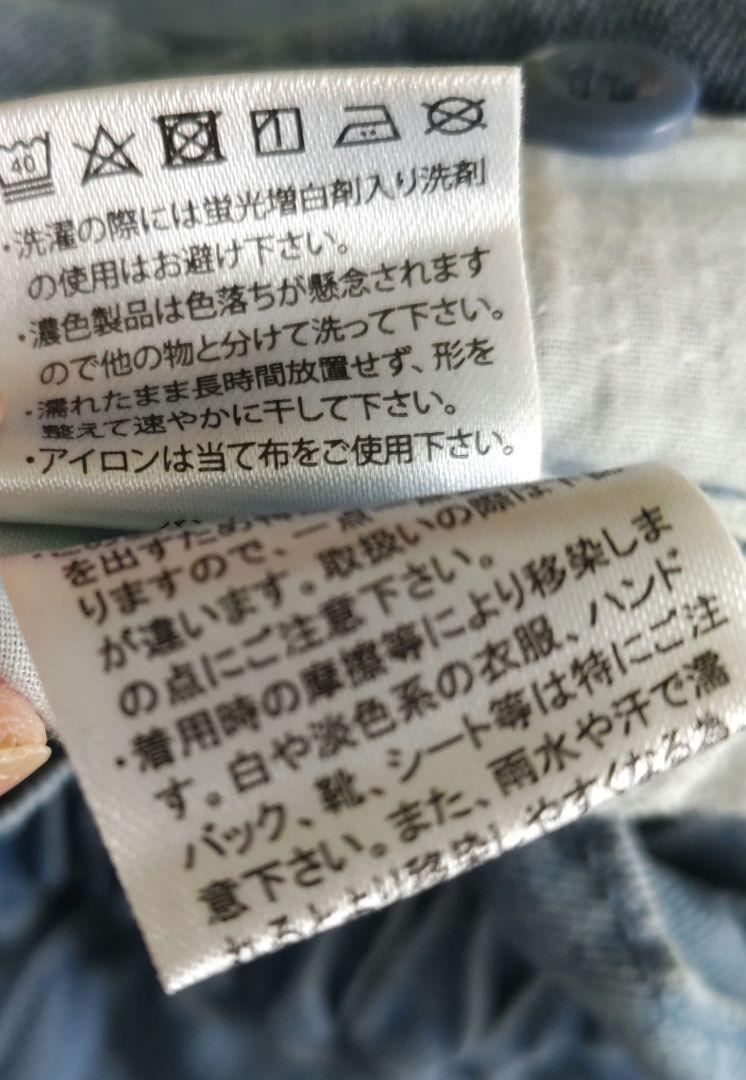 40
・洗濯の際には蛍光増白剤入り洗剤
の使用はお避け下さい。
・濃色製品は色落ちが懸念されます
ので他の物と分けて洗って下さい。
・濡れたまま長時間放置せず、形を
整えて速やかに干して下さい。
・アイロンは当て布をご使用下さい。
を出すため
りますので、一点一点
が違います。取扱いの際は
の点にご注意下さい。
・着用時の摩擦等により移染しま
す。白や淡色系の衣服、ハンド
バック、靴、シート等は特にご注
意下さい。また、雨水や汗で濡
れるとより移染しやすくなる為